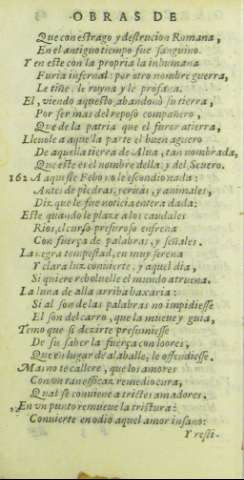 OBRAS DE
Que con estrago y destrucion Romana,
En el antiguo tiempo fue sanguino.
Y en este con la propria la inhumana
Furia infernal por otro nombre guerra,
Le tiñe, le royna y le profana.
El, viendo aquesto abandonò su tierra,
Por ser mas del reposo compañero,
Que de la patria que el furor atierra,
Lleuole a aquella parte el buen aguero
De aquella tierra de Alua, tan nombrada,
Que este es el nombre della: y del Seuero.
162 A aquiste Febo no le escondio nada:
Antes de piedras, yeruas, y animales,
Diz que le fue noticia entera dada:
Este quando le plaze a los caudales
Rios, el curso presuroso enfrena
Con fuerça de palabras, y señales.
La negra tempestad, en muy serena
Y clara luz conuierte, y aquel dia,
Si quiere reboluelle el mundo atruena.
La luna de alla arriba baxaria:
Si al son de las palabras no impidiesse
El son del carro, que la mueue y guia,
Temo que si dezirte presumiesse
De su saber la fuerça con loores,
Que en lugar de alaballe, le ofendiesse.
Mas no te callere, que los amores
Con vn tan efficaz remedio cura,
Qual se conuiene a tristes amadores.
En vn punto remueue la tristura:
Conuierte en odio aquel amor insano:
Y resti-